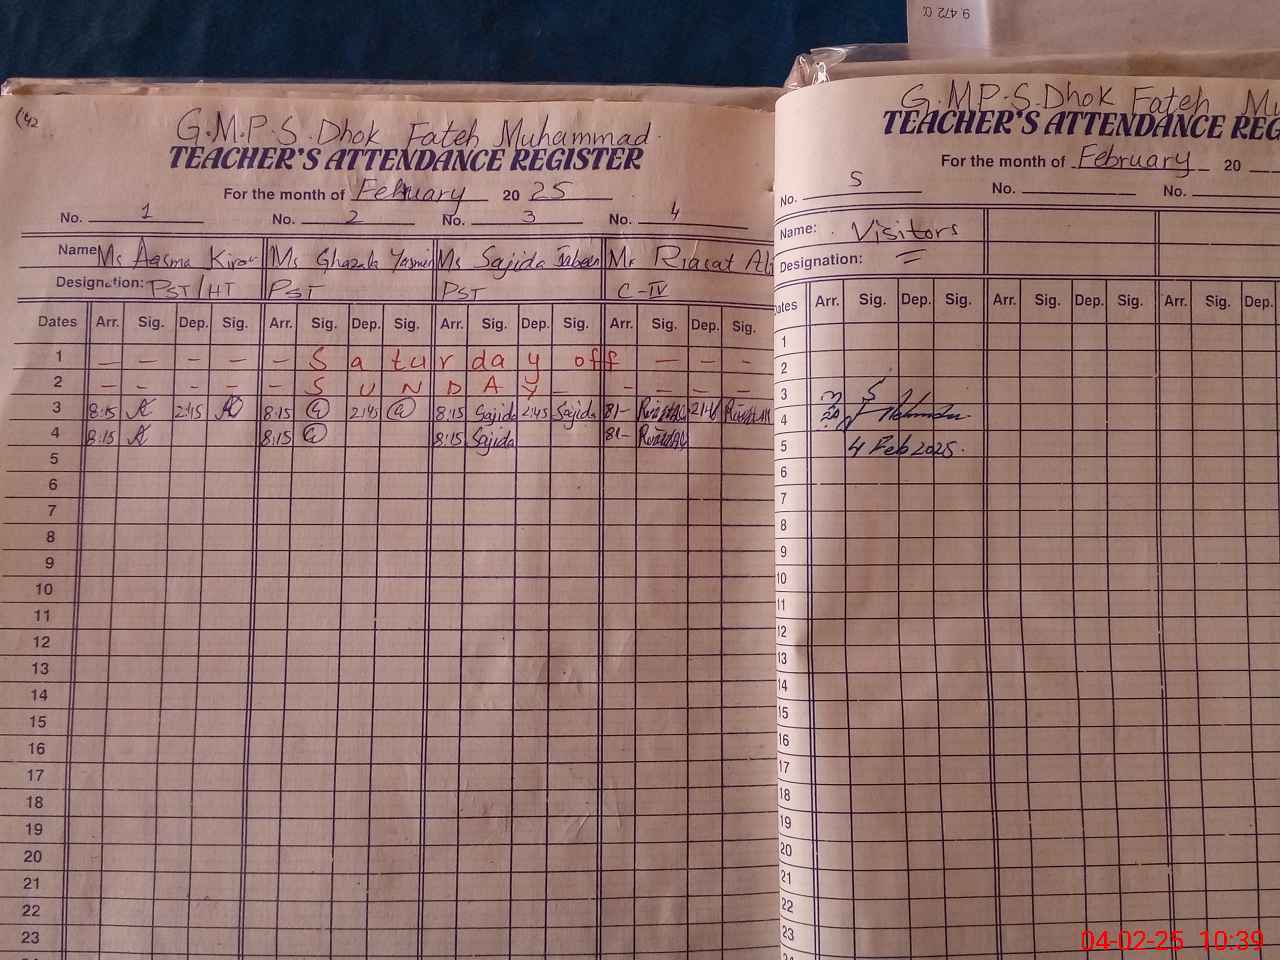 G.M.P.S. Dhok Fateh Muhammad.
TEACHER'S ATTENDANCE REGISTER
For the month of February 2025
No. 1 No. 2 No. 3 No. 4
Name: Ms Aasma Ms Ghazala Yasmin Ms Sajida Jabeen Mr Riasat Ali
Designation: PST/HT PST PST C-IV
Dates Arr. Sig. Dep. Sig. Arr. Sig. Dep. Sig. Arr. Sig. Dep. Sig. Arr. Sig. Dep. Sig.
1 – – – – – Saturday off – – –
2 – – – – – SUNDAY – – – –
3 8:15 2:45 8:15 2:45 8:15 Sajida 2:45 Sajida 8/-
4 8:15 8:15 8:15 Sajida 8/-
5
6
7
8
9
10
11
12
13
14
15
16
17
18
19
20
21
22
23
G.M.P.S. Dhok Fateh
TEACHER'S ATTENDANCE REG
For the month of February 20
No. 5 No. No.
Name: Visitors
Designation:
Dates Arr. Sig. Dep. Sig. Arr. Sig. Dep. Sig. Arr. Sig. Dep.
1
2
3
4
5 4 Feb 2025.
6
7
8
9
10
11
12
13
14
15
16
17
18
19
20
21
22
23
04-02-25 10:39